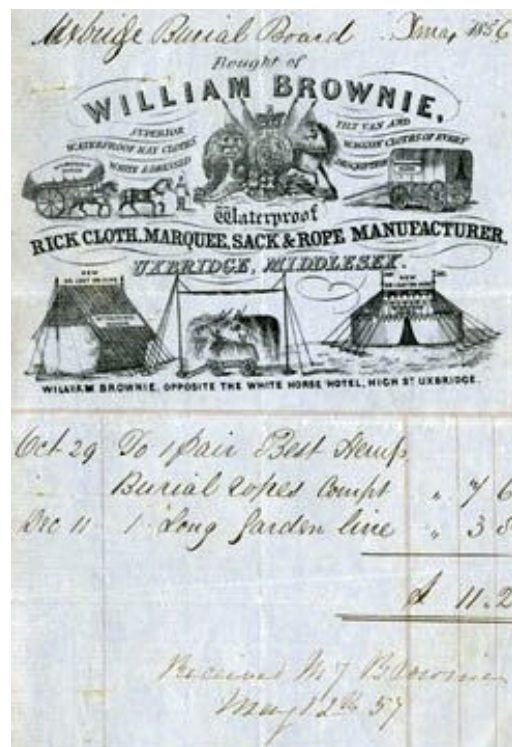 Uxbridge Burial Board Xmas 1856
Bought of
WILLIAM BROWNIE,
SUPERIOR
WATERPROOF HAY CLOTHS
WHITE & DRESSED
TILT VAN AND
WAGGON CLOTHS OF EVERY
DESCRIPTION
Waterproof
RICK CLOTH, MARQUEE, SACK & ROPE MANUFACTURER,
UXBRIDGE, MIDDLESEX.
NEW
OR LENT ON HIRE
NEW
OR LENT ON HIRE
WILLIAM BROWNIE, OPPOSITE THE WHITE HORSE HOTEL, HIGH ST UXBRIDGE.
Oct 29 To 1 pair Best Hemp
Burial Ropes Compt " 7 6
Dec 11 1 Long Garden line " 3 8
£ 11.2
Received Brownie
May 12th 57